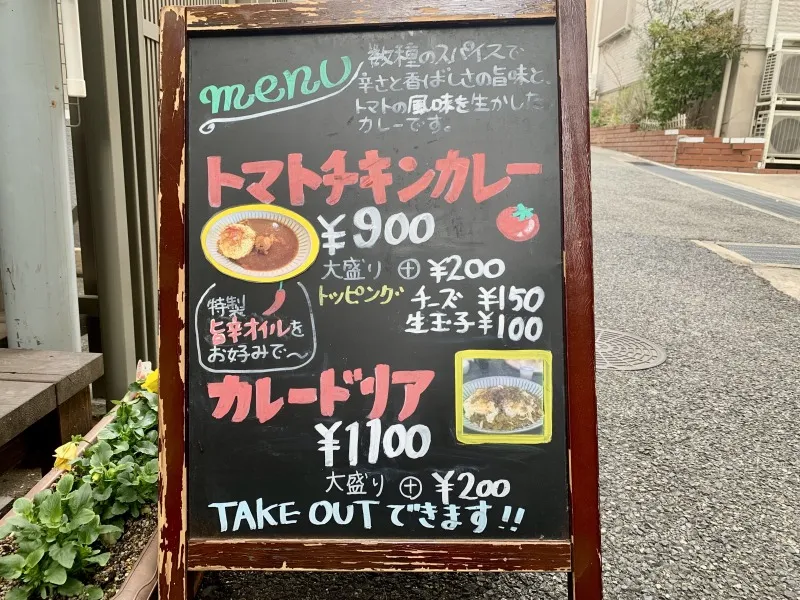 menu
数種のスパイスで
辛さと香ばしさの旨味と、
トマトの風味を生かした
カレーです。
トマトチキンカレー
¥900
大盛り ⊕ ¥200
トッピング チーズ ¥150
生玉子 ¥100
特製
旨辛オイルを
お好みで〜
カレードリア
¥1100
大盛り ⊕ ¥200
TAKE OUTできます!!